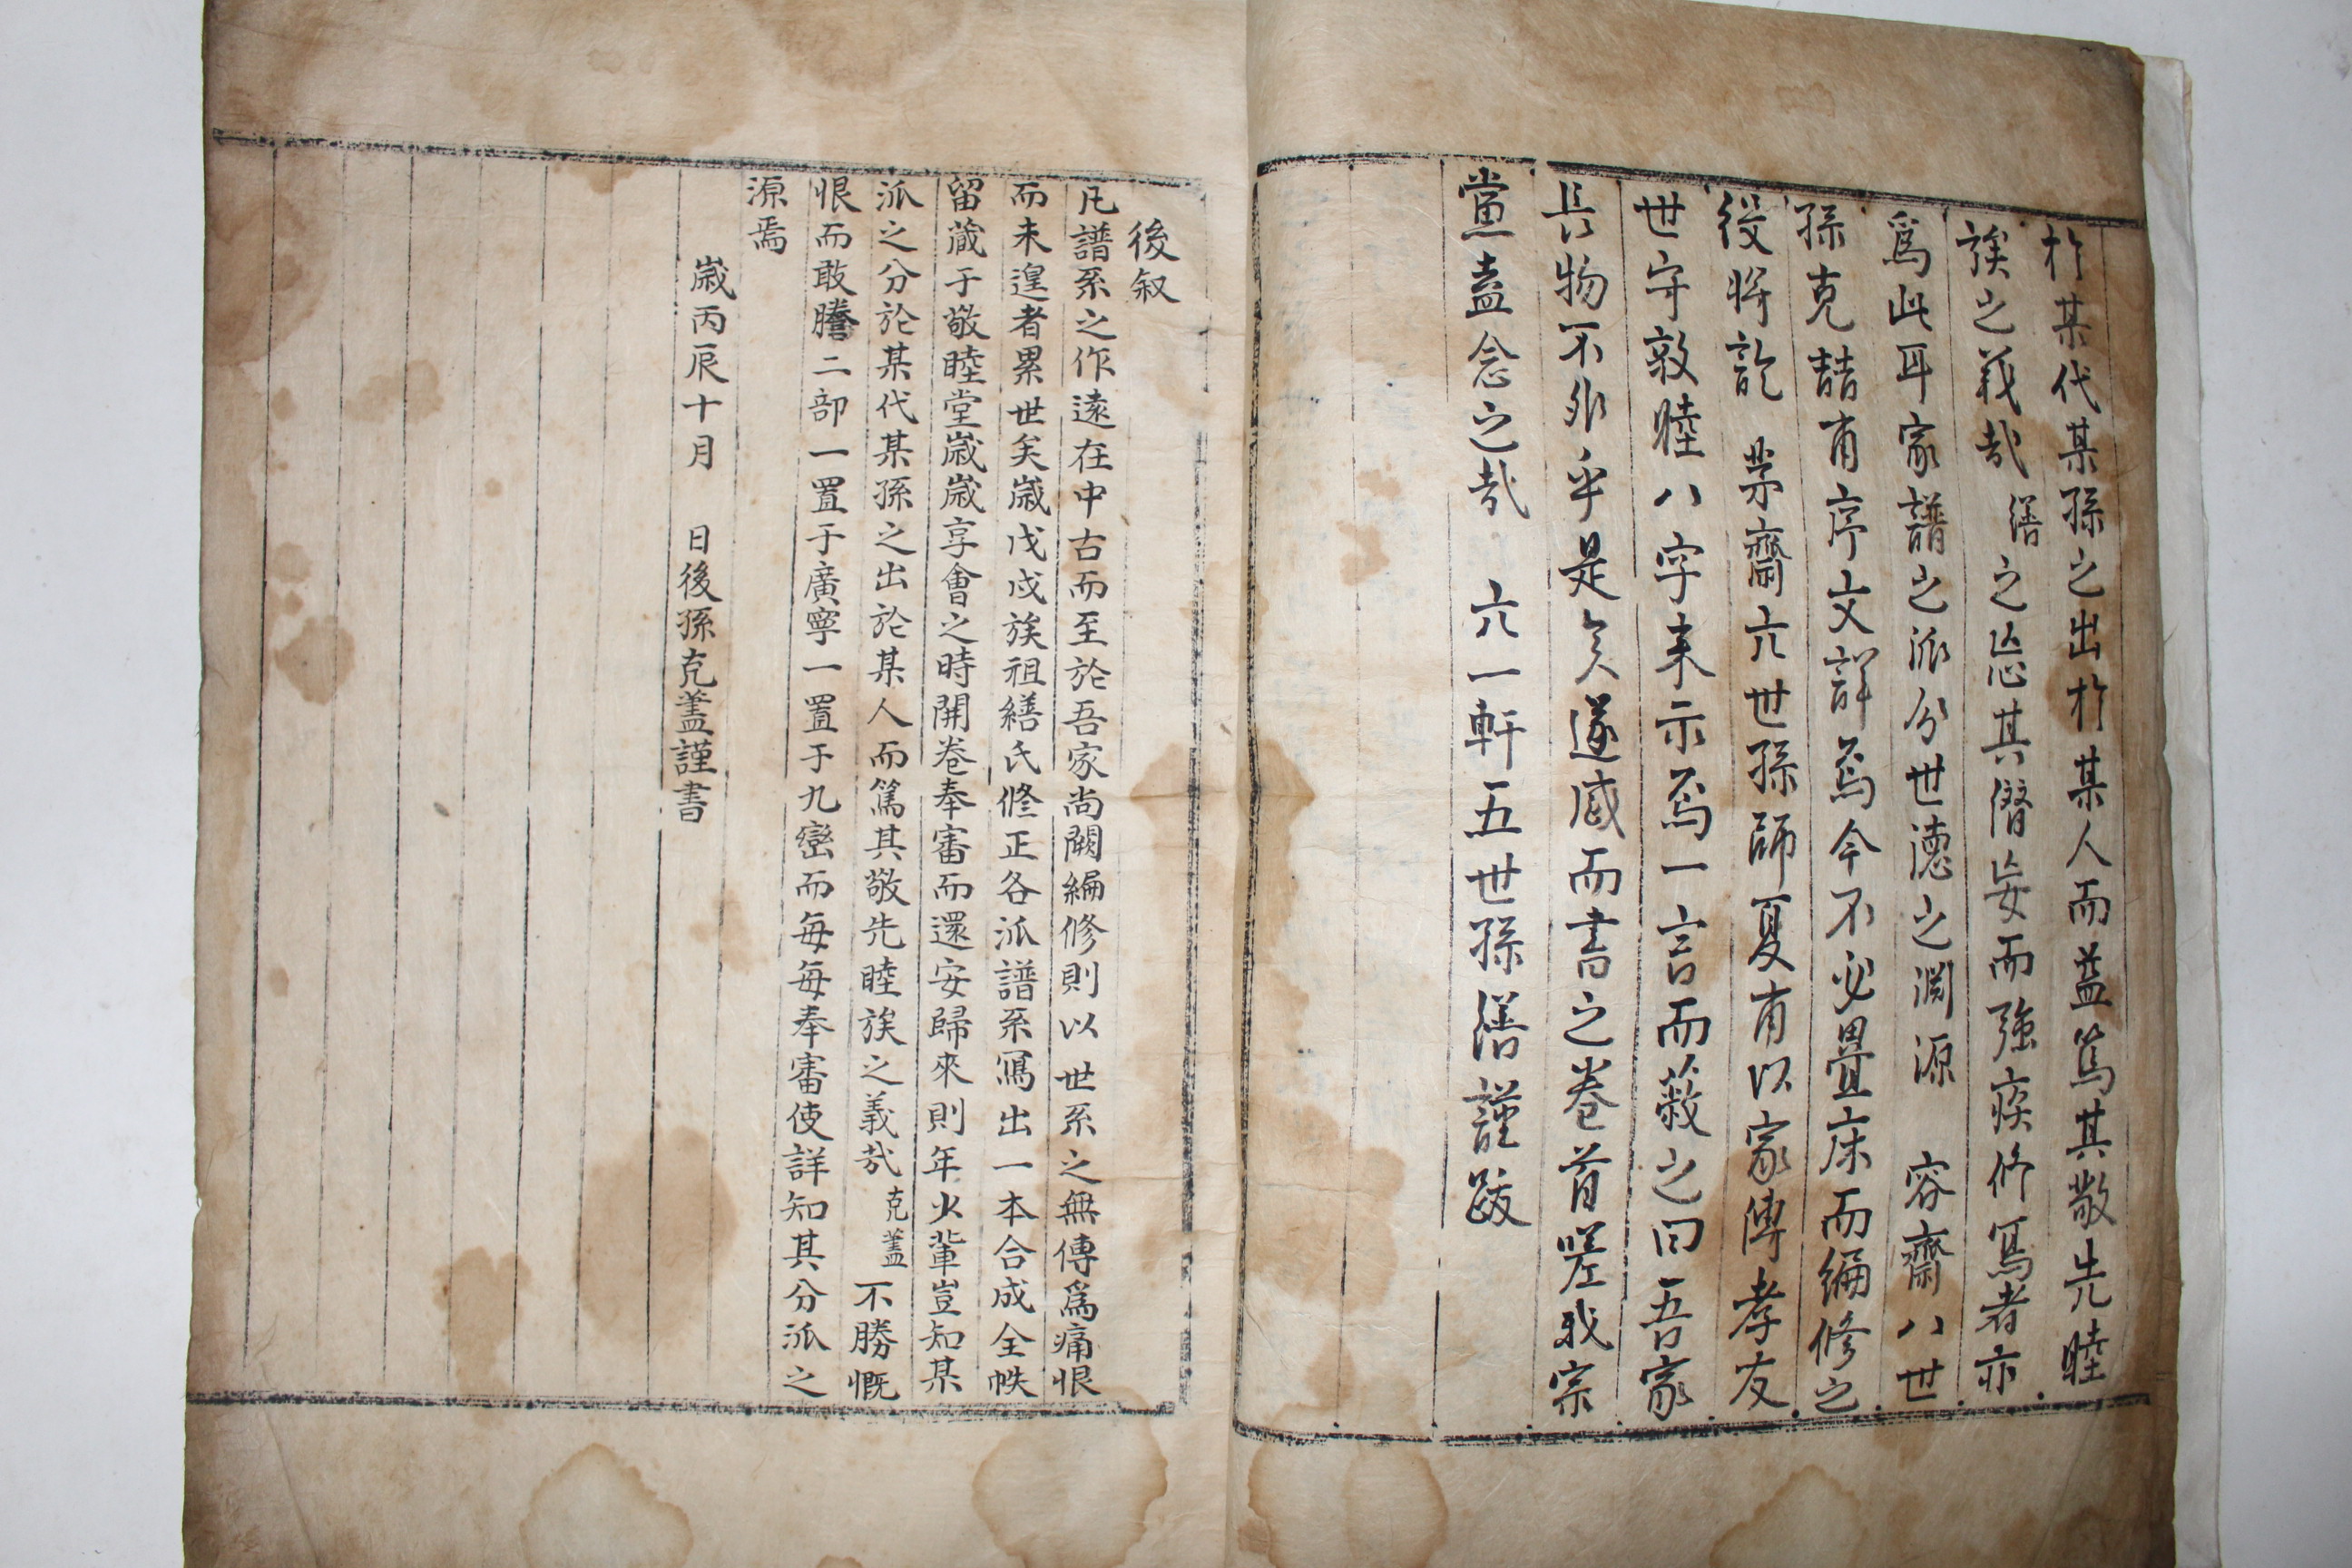 於某代某孫之出於某人而蓋篤其敬先睦
族之義哉 繕之恐其僭妄而强疾修寫者亦
爲此耳家譜之派分世德之淵源 容齋八世
孫克喆甫序文詳焉今不必疊床而編修之
役將訖 茅齋六世孫師夏甫以家傳孝友
世守敦睦八字來示爲一言而蔽之曰吾家
長物不外乎是矣遂感而書之卷首嗟我宗
黨盍念之哉 六一軒五世孫繕謹跋
後叙
凡譜系之作遠在中古而至於吾家尚闕編修則以世系之無傳爲痛恨
而未遑者累世矣歲戊戌族祖繕氏修正各派譜系寫出一本合成全帙
留藏于敬睦堂歲歲享會之時開卷奉審而還安歸來則年火輩豈知某
派之分於某代某孫之出於某人而篤其敬先睦族之義哉 克蓋不勝慨
恨而敢謄二部一置于廣寧一置于九巒而每每奉審使詳知其分派之
源焉
歲丙辰十月 日後孫克蓋謹書